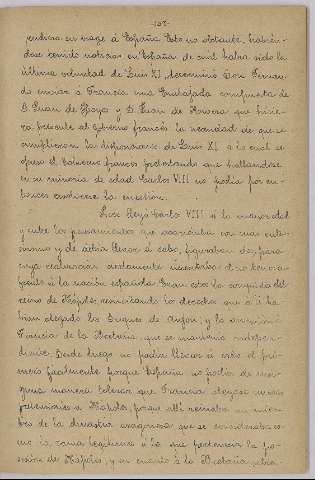 -102-
pendiera en viage á España. Esto no obstante, habién-
dose tenido noticias en España de cual habia sido la
última voluntad de Luis XI, determinó Don Fernan-
do enviar á Francia una Embajada compuesta de
D. Juan de y D. Juan de que hicie-
ra presente al Gobierno francés la necesidad de que se
cumplieran la disposiciones de Luis XI, á lo cual se
opuso el Gobierno francés pretestando que hallándose
en su minoria de edad Carlos VIII no podia por en-
tonces resolverse la cuestión.
Luego llegó Carlos VIII á la mayor edad
y entre los pensamientos que acariciaba con mas entu-
siasmo y de llevar á cabo, figuraban dos, para
cuya realización necesitaba
á la nación española. Eran estos la conquista del
reino de Nápoles, reivindicando los derechos que á él ha-
bian alegado los Duques de Anjou; y la á
Francia de la Bretaña, que se mantenia indepen-
diente. Desde luego no podia llevar á cabo el pri-
mero facilmente porque España no podia de nin-
guna manera tolerar que Francia alegase nuevas
pretensiones á Nápoles, porque alli reinaba un miem-
bro de la dinastia aragonesa que se consideraba co-
mo la rama legitima á la que pertenecia la po-
sesión de Nápoles, y en cuanto á la Bretaña